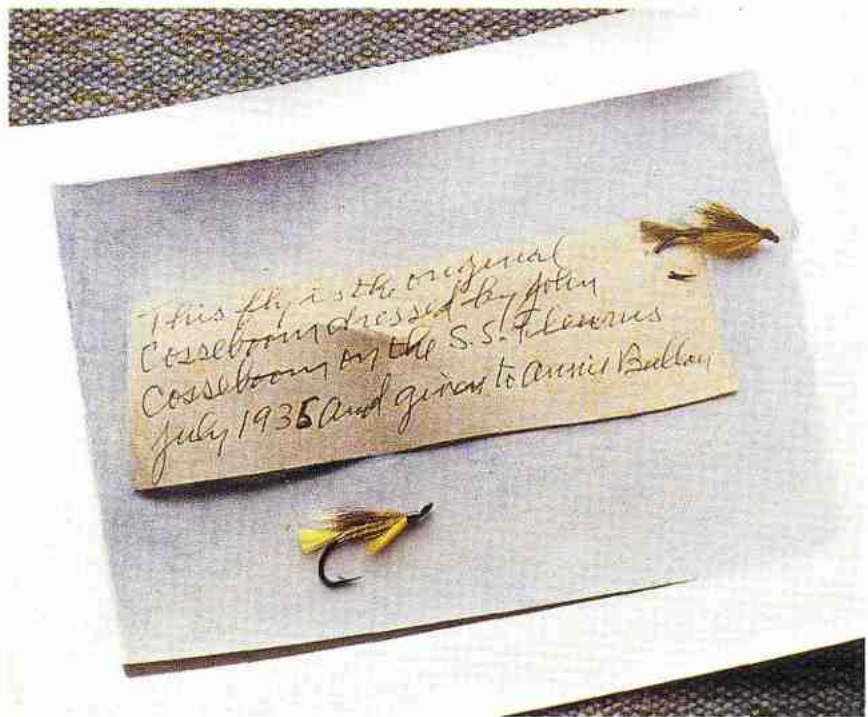 This fly is the original
Cosseboom dressed by John
Cosseboom on the S.S. Fleurus
July 1935 and given to Annie Ballou